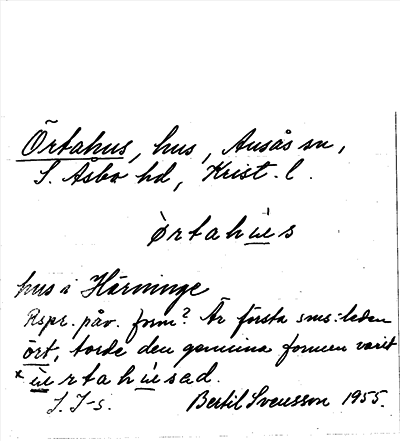 Örtahus, hus, Ausås sn,
S. Åsbo hd, Krist. l.
örtahu̇s
hus i Härninge
Rspr. påv. form? Är första sms:leden
ört, torde den genuina formen varit
rtahu̇sad.
Bertil Svensson 1955.